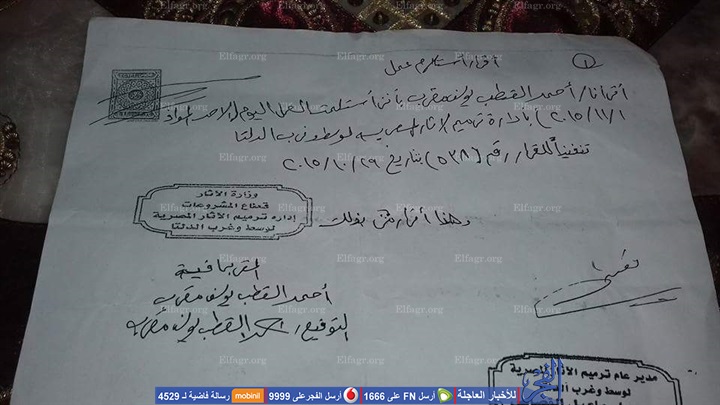 ①
اقرار استلام عمل
أقر أنا / أحمد القطب يوسف مقرب بأننى أستلمت العمل اليوم الأحد الموافق
١ / ١١ / ٢٠١٥) بإدارة ترميم الآثار المصريه لوسط وغرب الدلتا
تنفيذاً للقرار رقم (٥٣٨) بتاريخ ٢٩ / ١٠ / ٢٠١٥
وهذا أقرار منى بذلك
وزارة الآثار
قطاع المشروعات
إدارة ترميم الآثار المصرية
لوسط وغرب الدلتا
المقر بما فيه
أحمد القطب يوسف مقرب
التوقيع / أحمد القطب يوسف مقرب
مدير عام ترميم الآثار المصرية
لوسط وغرب الدلتا
Elfagr.org
للأخبار العاجلة
أرسل FN على 1666
أرسل الفجر على 9999
mobinil
رسالة فاضية لـ 4529